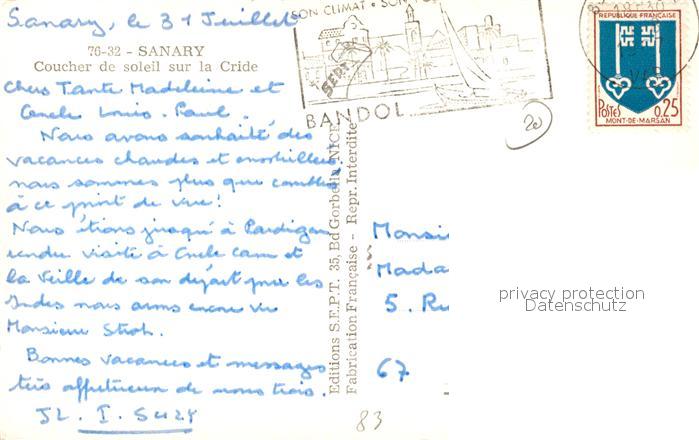 Sanary, le 31 Juillet
76-32 - SANARY
Coucher de soleil sur la Cride
Chers Tante Madeleine et
Oncle Louis-Paul.
Nous avons souhaité des
vacances chaudes et ensoleillées
nous sommes plus que comblés
à ce point de vue!
Nous étions jusqu'à
rendre visite à Oncle et
la veille de son départ pour les
Indes nous avons encore vu
Monsieur Stroh.
Bonnes vacances et messages
très affectueux de nous trois.
JL. I. Suzy
SON CLIMAT • SON
SEPT
BANDOL
20
REPUBLIQUE FRANÇAISE
POSTES
0,25
MONT-DE-MARSAN
Editions S.E.P.T. 35, Bd Gorbella, NICE
Fabrication Française - Repr. Interdite
Monsi
Mada
5. Ru
67
privacy protection
Datenschutz
83